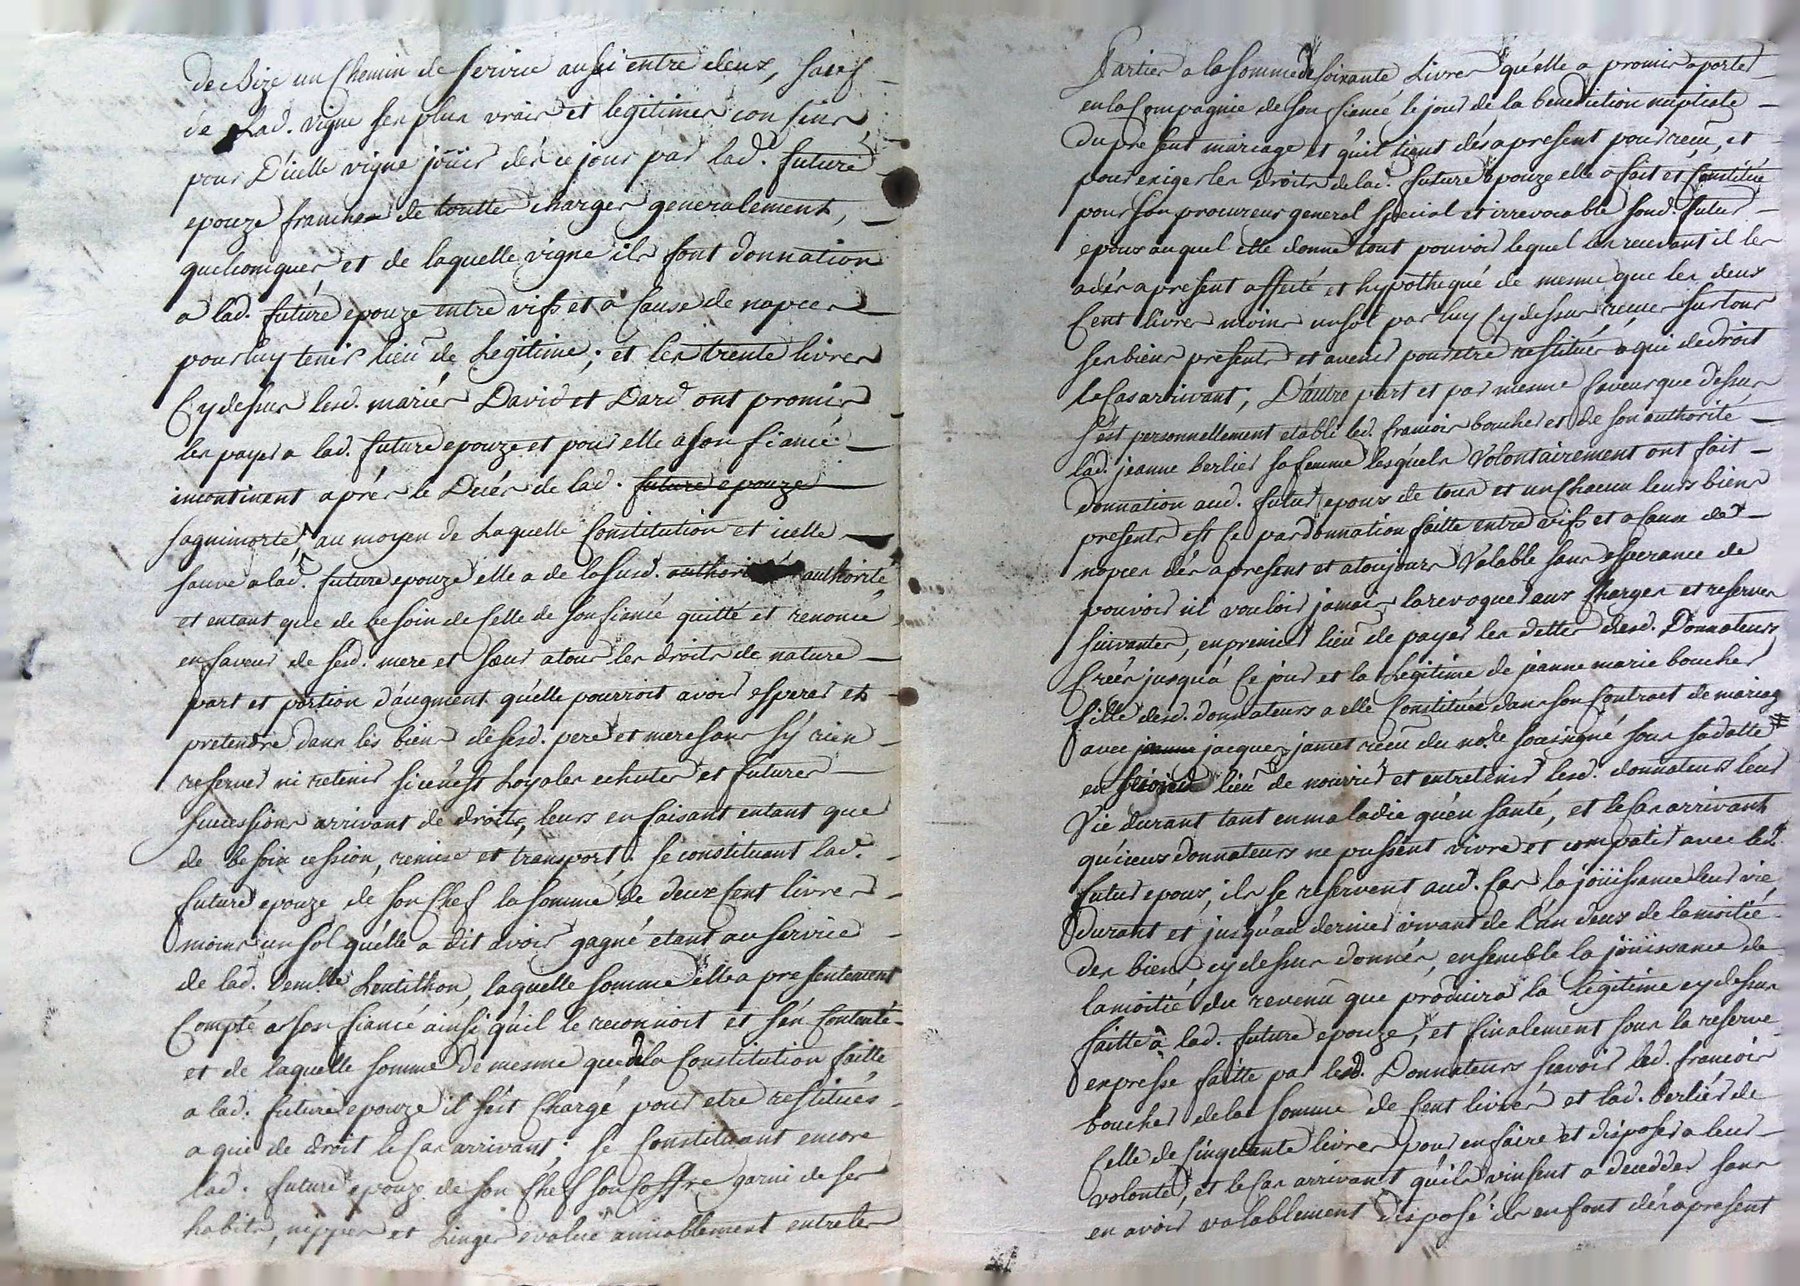 de Bize un Chemin de service aussi entre deux, sauf
de Lad. vigne ses plus vrais et legitimes confins
pour D'icelle vigne joüir dés ce jour par lad. future
epouze franche de toutte charges generalement,
quelconques et de laquelle vigne ils font donnation
a lad. future epouze entre vifs et a Cause de nopces
pour luy tenir lieu de Legitime; et les trente livres
Cy dessus lesd. mariés David et Dard ont promis
les payer a lad. future epouze et pour elle a son fiancé
incontinent aprés le Decés de lad. future epouze
au moyen de Laquelle Constitution et icelle
sauve a lad. future epouze elle a de la susd. authorité
et entant que de besoin de Celle de son fiancé quitté et renoncé
en faveur de sesd. mere et sœur a tous les droits de nature
part et portion d'augment qu'elle pourroit avoir esperer et
pretendre dans les biens de sesd. pere et mere sans s'y rien
reserver ni retenir si cen'est Loyales echutes et futures
successions arrivant de droits, leurs en faisant entant que
de besoin cession, remise et transport; se constituant lad.
future epouze de son Chef la somme de deux Cent livres
moins un sol qu'elle a dit avoir gagné etant au service
de lad. demlle Lentilhon, laquelle somme elle a presentement
Compté a son fiancé ainsi qu'il le reconnoit et s'en Contente
et de laquelle somme de mesme que de la Constitution faitte
a lad. future epouze il s'est Chargé pour etre restitués
a qui de droit le Cas arrivant; se Constituant encore
lad. future epouze de son Chef son Coffre garni de ses
habits, nippes et Linges evalué amiablement entre les
Parties a la somme de soixante Livres qu'elle a promis aporter
en la Compagnie de son fiancé le jour de la benediction nuptiale
du present mariage et qu'il tient dés a present pour reçu, et
pour exiger les droits de lad. future epouze elle a fait et Constitué
pour son procureur general special et irrevocable sond. futur
epoux auquel elle donne tout pouvoir lequel les recevant il les
a dés a present affecté et hypothequé de mesme que les deux
Cent livres moins un sol par luy Cy dessus reçues sur tous
ses biens presents et avenir pour etre restitués a qui de droit
le Cas arrivant; D'autre part et par mesme faveur que dessus
s'est personnellement etabli led. francois boucher et de son authorité
lad. jeanne berlier sa femme lesquels Volontairement ont fait
donnation aud. futur epoux de tous et un Chacun leurs biens
presents est Ce par donnation faitte entre vifs et a Cause de
nopces dés a present et a toujours Valable sans esperance de
pouvoir ni vouloir jamais la revoquer aux Charges et reserves
suivantes, en premier lieu de payer les dettes desd. Donnateurs
Creés jusqu'a Ce jour et la Legitime de jeanne marie boucher
fille desd. donnateurs a elle Constituée dans son Contract de mariag
avec jeanne jacques jamet reçu du nore soussigné sous sa datte #
en second lieu de nourrir et entretenir lesd. donnateurs leur
Vie durant tant en maladie qu'en santé, et le Cas arrivant
qu'iceux donnateurs ne pussent vivre et compatir avec led.
futur epoux, ils se reservent aud. Cas la joüissance leur vie
durant et jusqu'au dernier vivant de l'un d'eux de la moitié
des biens cy dessus donnés, ensemble la joüissance de
la moitié du revenu que produira la legitime cy dessus
faitte a lad. future epouze, et finalement sous la reserve
expresse faitte par lesd. Donnateurs sçavoir led. francois
boucher de la somme de Cent livres et lad. berlier de
Celle de Cinquante livres pour en faire et disposer a leur
volonté, et le Cas arrivant qu'ils vinsent a decedder sans
en avoir valablement disposé ils en font dés a present